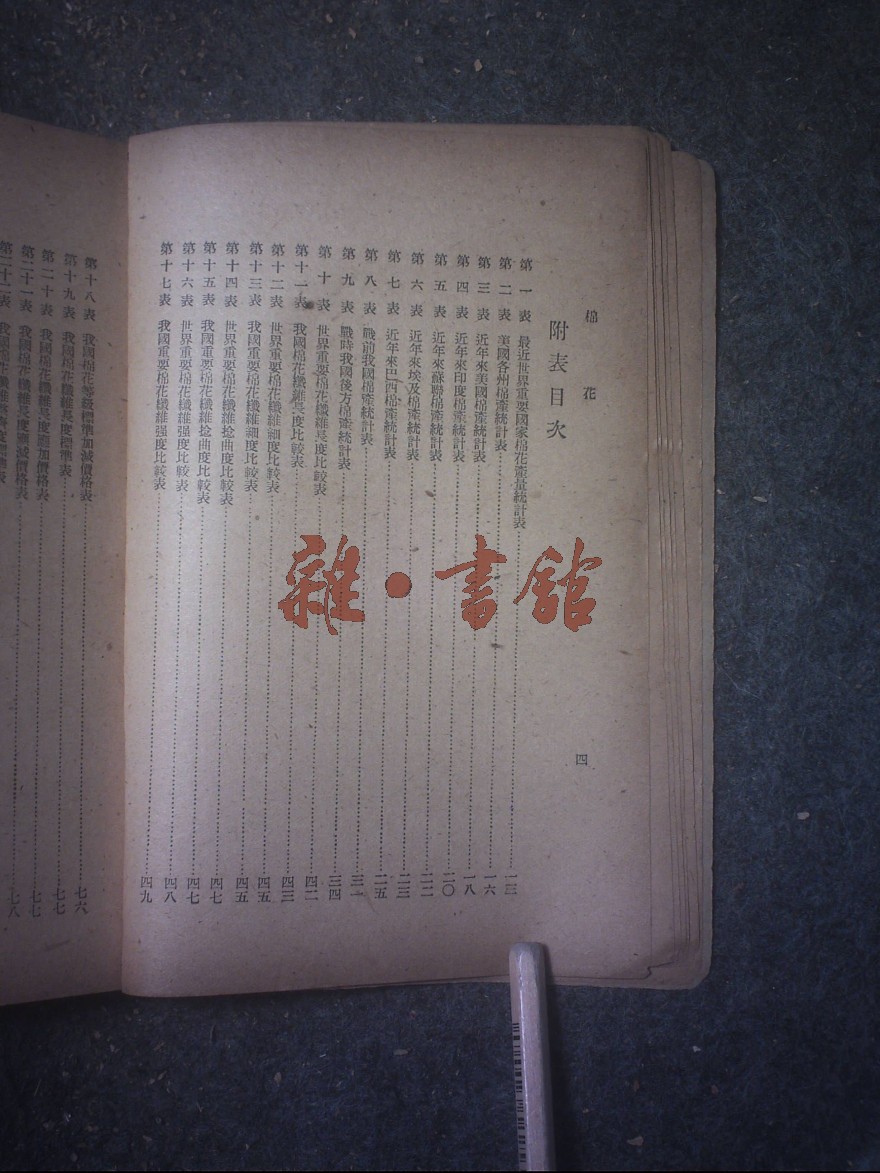 棉花
四
附表目次
第一表 最近世界重要國家棉花產量統計表……一三
第二表 美國各州棉產統計表……一六
第三表 近年來美國棉產統計表……一八
第四表 近年來印度棉產統計表……二〇
第五表 近年來蘇聯棉產統計表……二二
第六表 近年來埃及棉產統計表……二三
第七表 近年來巴西棉產統計表……二五
第八表 戰前我國棉產統計表……三一
第九表 戰時我國後方棉產統計表……三四
第十表 世界重要棉花纖維長度比較表……四二
第十一表 我國棉花纖維長度比較表……四三
第十二表 世界重要棉花纖維細度比較表……四五
第十三表 我國重要棉花纖維細度比較表……四五
第十四表 世界重要棉花纖維捻曲度比較表……四七
第十五表 我國重要棉花纖維捻曲度比較表……四七
第十六表 世界重要棉花纖維强度比較表……四八
第十七表 我國重要棉花纖維强度比較表……四九
第十八表 我國棉花等級標準加減價格表……七六
第十九表 我國棉花纖維長度標準表……七七
第二十表 我國棉花纖維長度遞加價格表……七七
第二十一表 我國棉花纖維長度遞減價格表……七八
第二十二表 我國棉花纖維
雜·書館